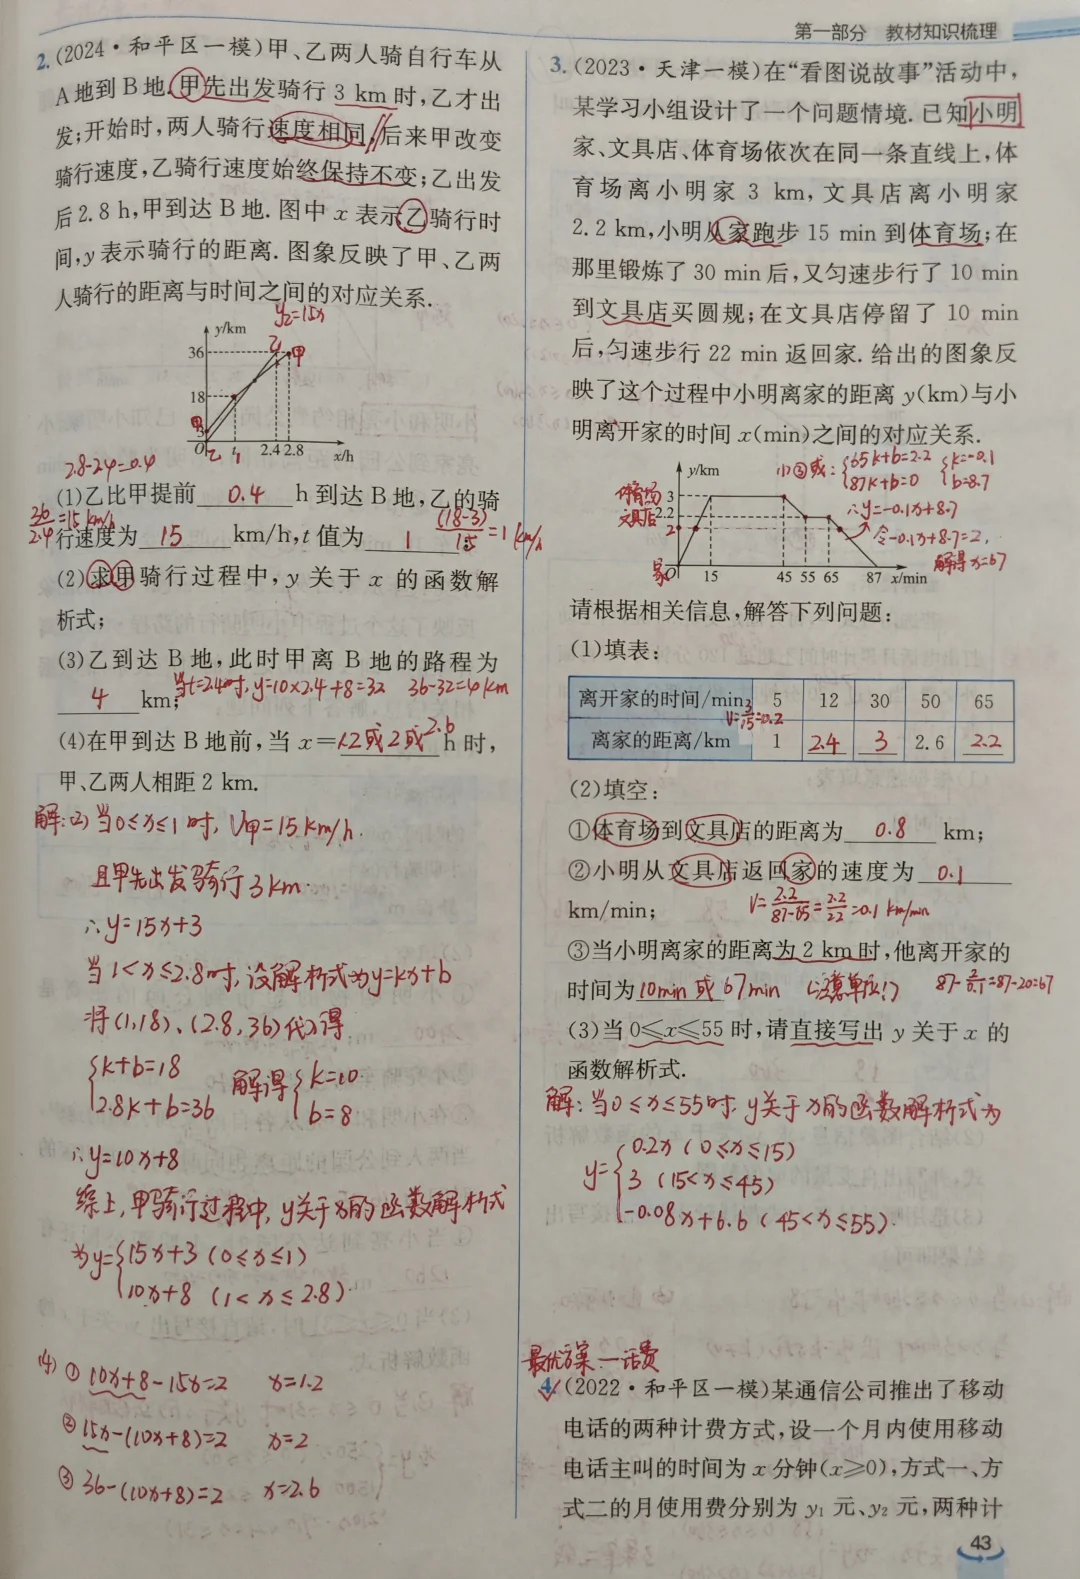 第一部分 教材知识梳理
2.(2024·和平区一模)甲、乙两人骑自行车从
A地到B地.甲先出发骑行3 km时,乙才出
发;开始时,两人骑行速度相同,后来甲改变
骑行速度,乙骑行速度始终保持不变;乙出发
后2.8 h,甲到达B地.图中x表示乙骑行时
间,y表示骑行的距离.图象反映了甲、乙两
人骑行的距离与时间之间的对应关系.
y₂=15x
y/km
36
乙
甲
18
甲
3
O
乙
t
1
2.4 2.8
x/h
2.8-2.4=0.4
(1)乙比甲提前 0.4 h到达B地,乙的骑
36/2.4=15 km/h
行速度为 15 km/h,t值为 1 ;
(18-3)/15=1 km/h
(2)求甲骑行过程中,y关于x的函数解
析式;
(3)乙到达B地,此时甲离B地的路程为
4 km;
当t=2.4时,y=10×2.4+8=32 36-32=4km
(4)在甲到达B地前,当x=1.2或2或2.6 h时,
甲、乙两人相距2 km.
解:(2)当0≤x≤1时,V甲=15km/h.
且甲先出发骑行3km.
∴y=15x+3
当1<x≤2.8时,设解析式为y=kx+b
将(1,18)、(2.8,36)代入得
{k+b=18
2.8k+b=36
解得{k=10
b=8
∴y=10x+8
综上,甲骑行过程中,y关于x的函数解析式
为y={15x+3 (0≤x≤1)
10x+8 (1<x≤2.8).
(4)①10x+8-15x=2 x=1.2
②15x-(10x+8)=2 x=2
③36-(10x+8)=2 x=2.6
3.(2023·天津一模)在“看图说故事”活动中,
某学习小组设计了一个问题情境.已知小明
家、文具店、体育场依次在同一条直线上,体
育场离小明家3 km,文具店离小明家
2.2 km,小明从家跑步15 min到体育场;在
那里锻炼了30 min后,又匀速步行了10 min
到文具店买圆规;在文具店停留了10 min
后,匀速步行22 min返回家.给出的图象反
映了这个过程中小明离家的距离y(km)与小
明离开家的时间x(min)之间的对应关系.
y/km
体育场
3
文具店
2.2
2
家
O
15
45 55 65
87
x/min
小③或:{65k+b=2.2
87k+b=0
{k=-0.1
b=8.7
∴y=-0.1x+8.7
令-0.1x+8.7=2,
解得x=67
请根据相关信息,解答下列问题:
(1)填表:
离开家的时间/min 5 12 30 50 65
V=3/15=0.2
离家的距离/km 1 2.4 3 2.6 2.2
(2)填空:
①体育场到文具店的距离为 0.8 km;
②小明从文具店返回家的速度为 0.1
km/min;
V=2.2/(87-65)=2.2/22=0.1 km/min
③当小明离家的距离为2 km时,他离开家的
时间为10min或67min
(注意单位!)
87-2/0.1=87-20=67
(3)当0≤x≤55时,请直接写出y关于x的
函数解析式.
解:当0≤x≤55时,y关于x的函数解析式为
y={0.2x (0≤x≤15)
3 (15<x≤45)
-0.08x+6.6 (45<x≤55).
最优方案—话费
4.(2022·和平区一模)某通信公司推出了移动
电话的两种计费方式,设一个月内使用移动
电话主叫的时间为x分钟(x≥0),方式一、方
式二的月使用费分别为y₁元、y₂元,两种计
43